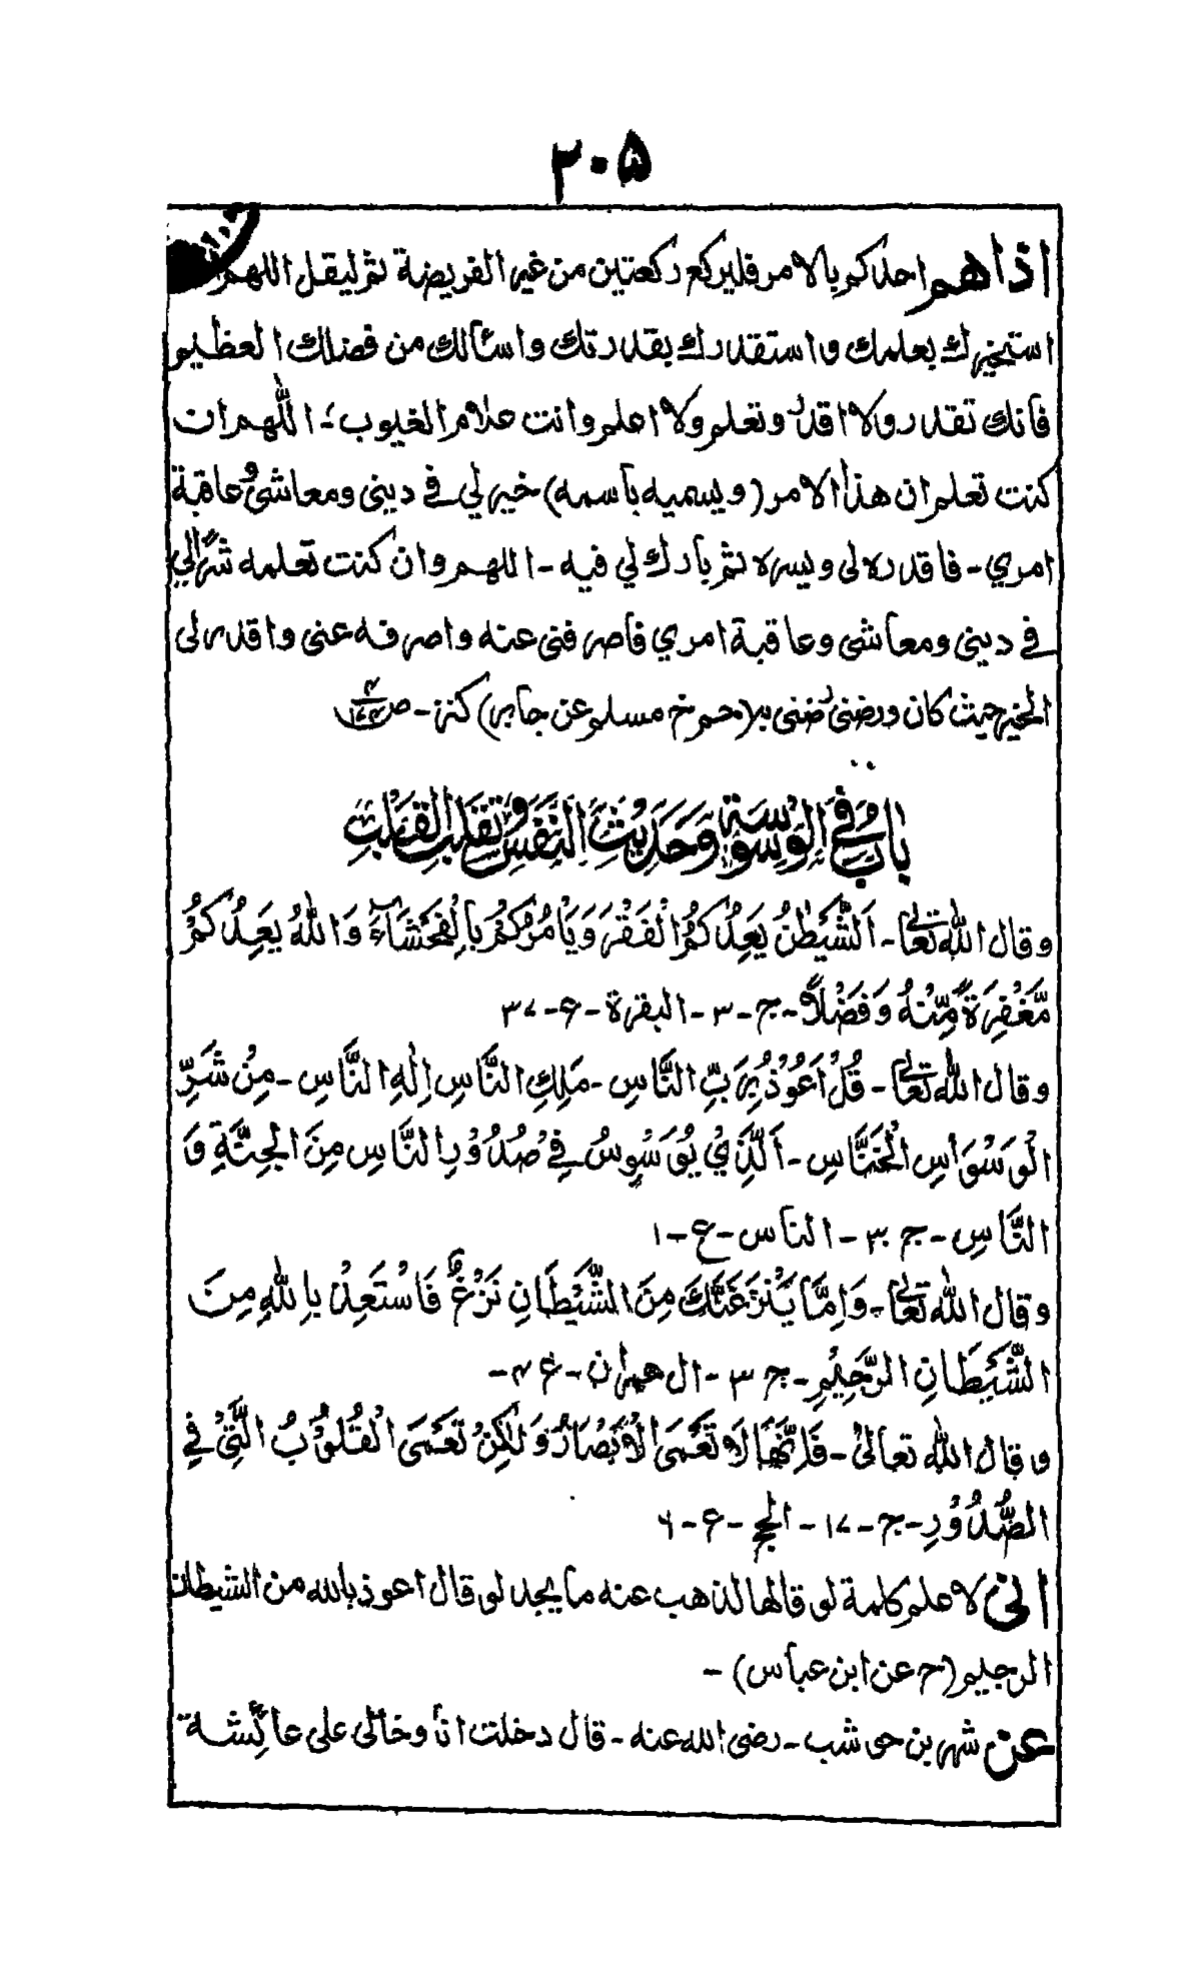 ۲۰۵
اذا هم احدكم بالامر فليركع ركعتين من غير الفريضة ثم ليقل اللهم
استخيرك بعلمك واستقدرك بقدرتك واسألك من فضلك العظيم
فانك تقدر ولا اقدر وتعلم ولا اعلم وانت علام الغيوب ؛ اللهم ان
كنت تعلم ان هذا الامر (ويسميه باسمه) خير لي في ديني ومعاشي وعاقبة
امري - فاقدره لي ويسره ثم بارك لي فيه - اللهم وان كنت تعلمه شرًا لي
في ديني ومعاشي وعاقبة امري فاصرفني عنه واصرفه عني واقدر لي
الخير حيث كان ورضني به (حم خ مسلم عن جابر) كنز - ص
باب في الوسوسة وحديث النفس وتقلب القلب
وقال الله تعالى - اَلشَّيْطٰنُ يَعِدُكُمُ الْفَقْرَ وَيَأْمُرُكُمْ بِالْفَحْشَآءِ وَاللهُ يَعِدُكُمْ
مَّغْفِرَةً مِّنْهُ وَفَضْلًا - ج - ۳ - البقرة - ع - ۳۷
وقال الله تعالى - قُلْ اَعُوْذُ بِرَبِّ النَّاسِ - مَلِكِ النَّاسِ اِلٰهِ النَّاسِ - مِنْ شَرِّ
الْوَسْوَاسِ الْخَنَّاسِ - اَلَّذِيْ يُوَسْوِسُ فِيْ صُدُوْرِ النَّاسِ مِنَ الْجِنَّةِ وَ
النَّاسِ - ج ۳۰ - الناس - ع - ۱
وقال الله تعالى - وَاِمَّا يَنْزَغَنَّكَ مِنَ الشَّيْطَانِ نَزْغٌ فَاسْتَعِذْ بِاللهِ مِنَ
الشَّيْطَانِ الرَّجِيْمِ - ج ۳ - ال عمران - ع ۴ -
وقال الله تعالىٰ - فَاِنَّهَا لَا تَعْمَى الْاَبْصَارُ وَلٰكِنْ تَعْمَى الْقُلُوْبُ الَّتِيْ فِي
الصُّدُوْرِ - ج - ۱۷ - الحج - ع - ۶
انى لاعلم كلمة لو قالها لذهب عنه ما يجد لو قال اعوذ بالله من الشيطان
الرجيم (حم عن ابن عباس) -
عن شهر بن حوشب - رضى الله عنه - قال دخلت انا وخالى على عائشة